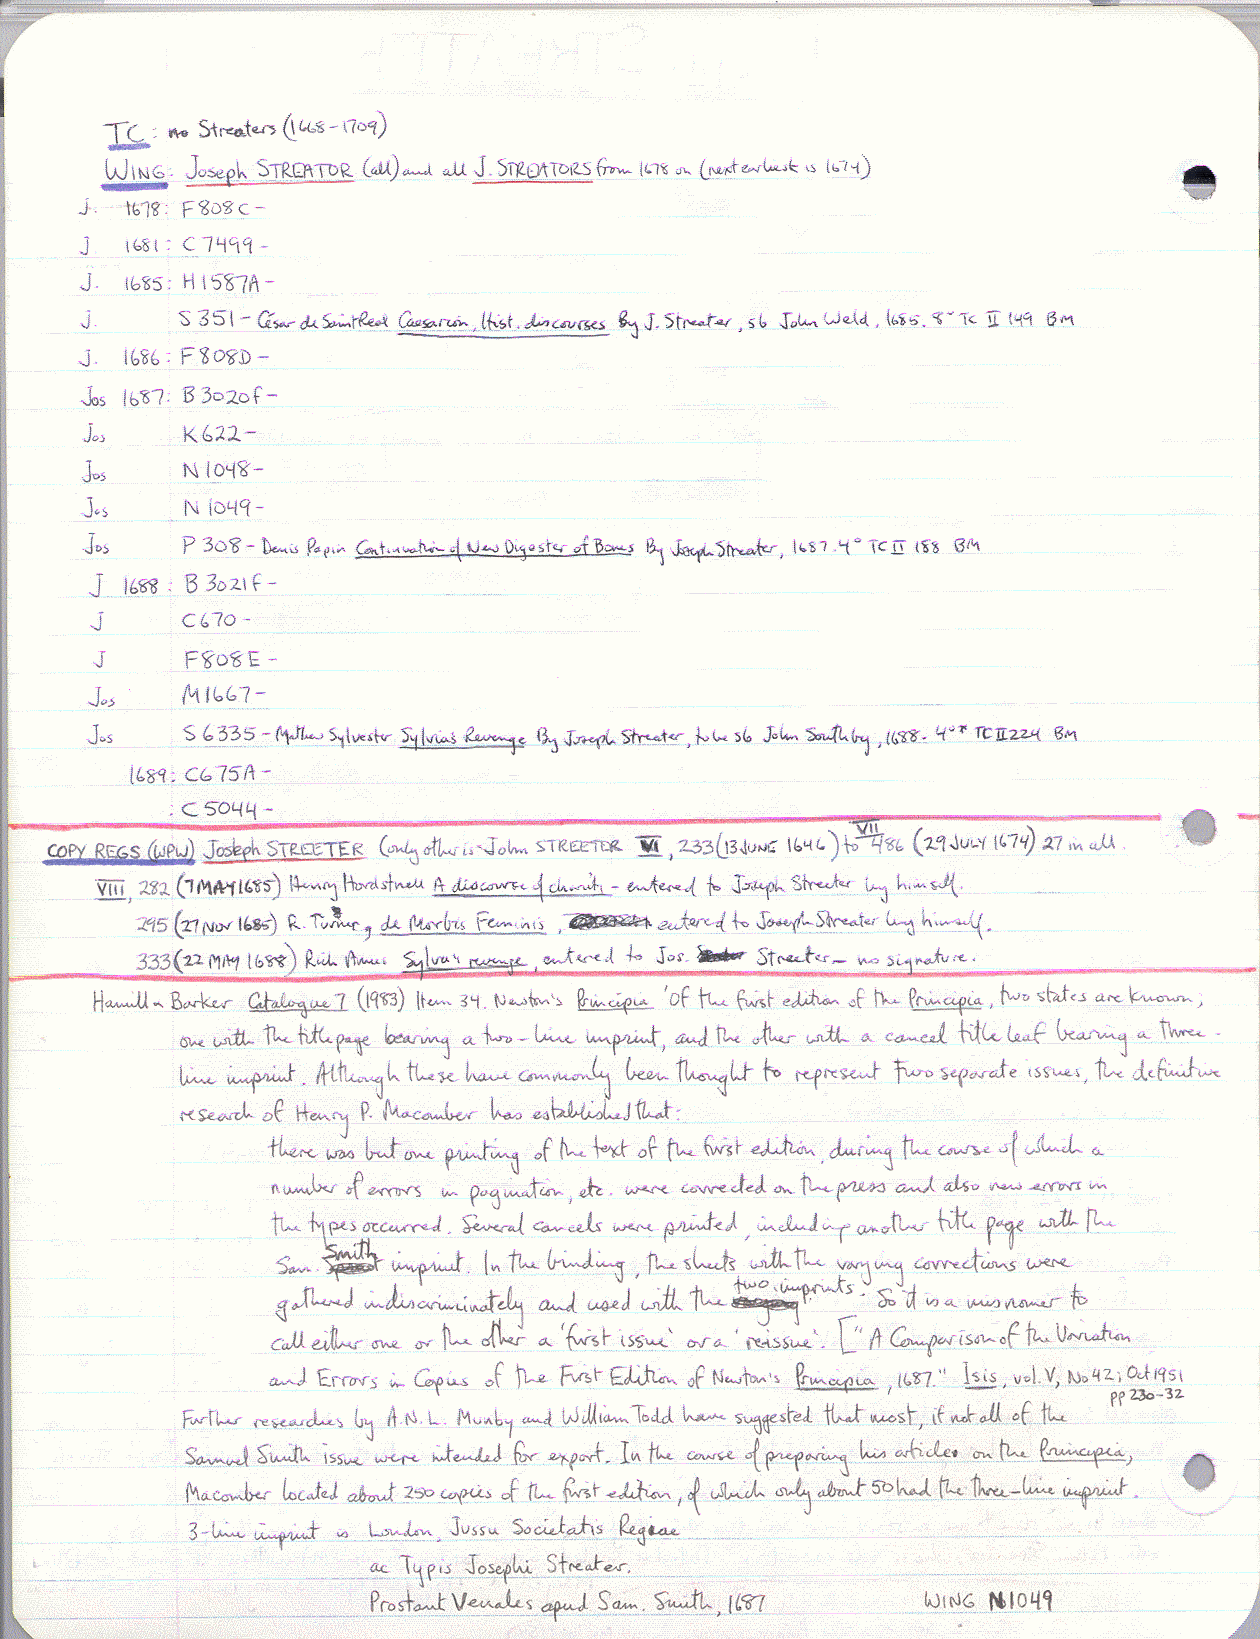 TC: no Streaters (1668-1709)
WING: Joseph STREATOR (all) and all J. STREATORS from 1678 on (next earliest is 1674)
J. 1678: F808C-
J 1681: C7499-
J. 1685: H1587A-
J. S351- César de Saint Real Caesarion, Hist. discourses By J. Streater, sb John Weld, 1685. 8° TC II 149 BM
J. 1686: F808D-
Jos 1687: B3020f-
Jos K622-
Jos N1048-
Jos N1049-
Jos P308- Denis Papin Continuation of New Digester of Bones By Joseph Streater, 1687. 4° TC II 158 BM
J 1688: B3021f-
J C670-
J F808E-
Jos M1667-
Jos S6335- Mathew Sylvester Sylvias Revenge By Joseph Streater, to be sb John Southby, 1688- 4°* TC II 224 BM
1689: C675A-
: C5044-
COPY REGS (WPW) Joseph STREETER (only other is John STREETER VI, 233 (13 JUNE 1646) to VII 486 (29 JULY 1674) 27 in all.
VIII, 282 (7 MAY 1685) Henry A discourse of - entered to Joseph Streeter by himself.
295 (27 NOV 1685) R. Turner, de Morbis Feminis, entered to Joseph Streater by himself.
333 (22 MAY 1688) Rich Ames Sylva's revenge, entered to Jos. Streeter- no signature.
Hamill & Barker Catalogue 7 (1983) Item 34. Newton's Principia 'Of the first edition of the Principia, two states are known;
one with the titlepage bearing a two-line imprint, and the other with a cancel title leaf bearing a three-
line imprint. Although these have commonly been thought to represent two separate issues, the definitive
research of Henry P. Macomber has established that:
there was but one printing of the text of the first edition, during the course of which a
number of errors in pagination, etc. were corrected on the press and also new errors in
the types occurred. Several cancels were printed, including another title page with the
Sam. Smith imprint. In the binding, the sheets with the varying corrections were
gathered indiscriminately and used with the two imprints. So it is a misnomer to
call either one or the other a 'first issue' or a 'reissue'. ["A Comparison of the Variation
and Errors in Copies of the First Edition of Newton's Principia, 1687." Isis, vol. V, No 42; Oct 1951
pp 230-32
Further researches by A.N.L. Munby and William Todd have suggested that most, if not all of the
Samuel Smith issue were intended for export. In the course of preparing his articles on the Principia,
Macomber located about 250 copies of the first edition, of which only about 50 had the three-line imprint.
3-line imprint is London, Jussu Societatis Regiae
ac Typis Josephi Streater.
Prostant Venales apud Sam. Smith, 1687 WING N1049